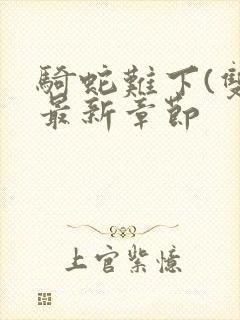 騎蛇難下(雙
最新章節
上官紫憶